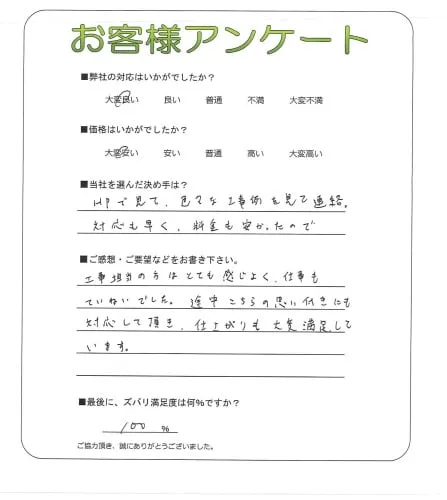 お客様アンケート
■弊社の対応はいかがでしたか?
大変良い 良い 普通 不満 大変不満
■価格はいかがでしたか?
大変安い 安い 普通 高い 大変高い
■当社を選んだ決め手は?
HPで見て、色々な工事例を見て連絡。
対応も早く、料金も安かったので
■ご感想・ご要望などをお書き下さい。
工事担当の方はとても感じよく、仕事も
ていねいでした。途中こちらの思い付きにも
対応して頂き、仕上がりも大変満足して
います。
■最後に、ズバリ満足度は何%ですか?
100 %
ご協力頂き、誠にありがとうございました。